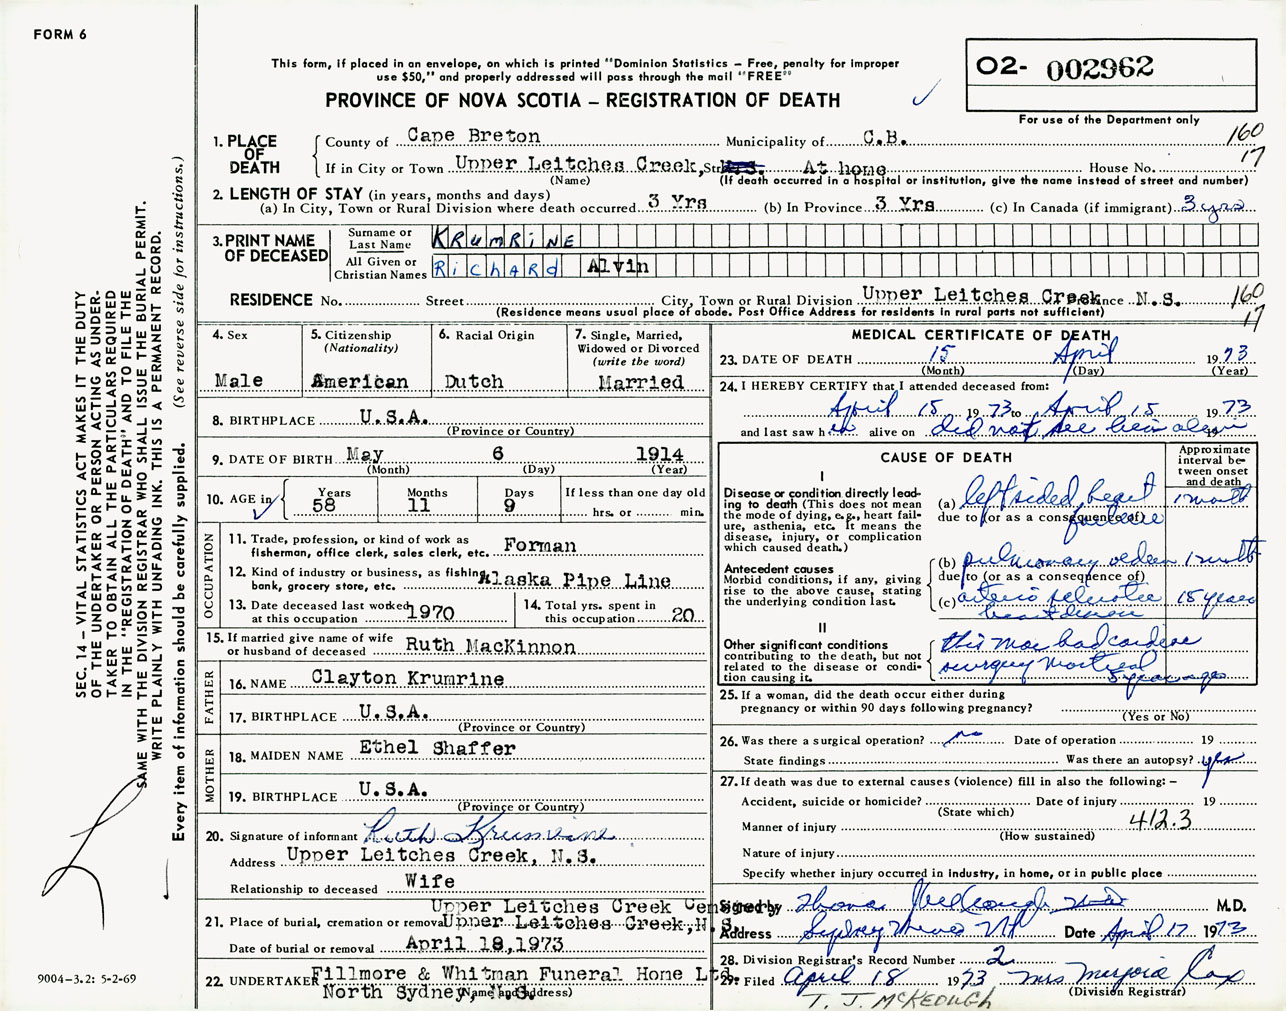 FORM 6
This form, if placed in an envelope, on which is printed "Dominion Statistics – Free, penalty for improper
use $50," and properly addressed will pass through the mail "FREE"
PROVINCE OF NOVA SCOTIA – REGISTRATION OF DEATH
02- 002962
For use of the Department only
160
17
1. PLACE OF DEATH
County of Cape Breton Municipality of C.B.
If in City or Town Upper Leitches Creek, Str At home House No.
(Name) (If death occurred in a hospital or institution, give the name instead of street and number)
2. LENGTH OF STAY (in years, months and days)
(a) In City, Town or Rural Division where death occurred 3 Yrs (b) In Province 3 Yrs (c) In Canada (if immigrant) 3 yrs
3. PRINT NAME OF DECEASED
Surname or Last Name KRUMRINE
All Given or Christian Names RICHARD Alvin
RESIDENCE No. Street City, Town or Rural Division Upper Leitches Creek Province N.S.
(Residence means usual place of abode. Post Office Address for residents in rural parts not sufficient)
160
17
4. Sex
Male
5. Citizenship
(Nationality)
American
6. Racial Origin
Dutch
7. Single, Married,
Widowed or Divorced
(write the word)
Married
8. BIRTHPLACE U.S.A.
(Province or Country)
9. DATE OF BIRTH May 6 1914
(Month) (Day) (Year)
10. AGE in
Years Months Days If less than one day old
58 11 9 hrs. or min.
OCCUPATION
11. Trade, profession, or kind of work as
fisherman, office clerk, sales clerk, etc. Forman
12. Kind of industry or business, as fishing,
bank, grocery store, etc. Alaska Pipe Line
13. Date deceased last worked
at this occupation 1970
14. Total yrs. spent in
this occupation 20
15. If married give name of wife
or husband of deceased Ruth MacKinnon
FATHER
16. NAME Clayton Krumrine
17. BIRTHPLACE U.S.A.
(Province or Country)
MOTHER
18. MAIDEN NAME Ethel Shaffer
19. BIRTHPLACE U.S.A.
(Province or Country)
20. Signature of informant Ruth Krumrine
Address Upper Leitches Creek, N.S.
Relationship to deceased Wife
Upper Leitches Creek Cemetery
21. Place of burial, cremation or removal Upper Leitches Creek, N.S.
Date of burial or removal April 18, 1973
22. UNDERTAKER Fillmore & Whitman Funeral Home Ltd.
North Sydney, N.S.
(Name and address)
MEDICAL CERTIFICATE OF DEATH
23. DATE OF DEATH 15 April 1973
(Month) (Day) (Year)
24. I HEREBY CERTIFY that I attended deceased from:
April 15 1973 to April 15 1973
and last saw him alive on did not see him alive 19
CAUSE OF DEATH
Approximate
interval be-
tween onset
and death
I
Disease or condition directly lead-
ing to death (This does not mean
the mode of dying, e.g., heart fail-
ure, asthenia, etc. It means the
disease, injury, or complication
which caused death.)
(a) left sided heart failure 1 month
due to (or as a consequence of)
Antecedent causes
Morbid conditions, if any, giving
rise to the above cause, stating
the underlying condition last.
(b) pulmonary edema 1 month
due to (or as a consequence of)
(c) arterio sclerotic heart disease 15 years
II
Other significant conditions
contributing to the death, but not
related to the disease or condi-
tion causing it.
this man had cardiac
surgery Montreal
5 years ago
25. If a woman, did the death occur either during
pregnancy or within 90 days following pregnancy?
(Yes or No)
26. Was there a surgical operation? no Date of operation 19
State findings Was there an autopsy? yes
27. If death was due to external causes (violence) fill in also the following: –
Accident, suicide or homicide? Date of injury 19
(State which)
Manner of injury 412.3
(How sustained)
Nature of injury
Specify whether injury occurred in industry, in home, or in public place
Signed by Thomas McKeough M.D.
Address Sydney Mines NS Date April 17 1973
28. Division Registrar's Record Number 2
29. Filed April 18 1973 Mrs Marjorie Cox
(Division Registrar)
T. J. McKEOUGH
SEC. 14 – VITAL STATISTICS ACT MAKES IT THE DUTY
OF THE UNDERTAKER OR PERSON ACTING AS UNDER-
TAKER TO OBTAIN ALL THE PARTICULARS REQUIRED
IN THE "REGISTRATION OF DEATH" AND TO FILE THE
SAME WITH THE DIVISION REGISTRAR WHO SHALL ISSUE THE BURIAL PERMIT.
WRITE PLAINLY WITH UNFADING INK. THIS IS A PERMANENT RECORD.
Every item of information should be carefully supplied. (See reverse side for instructions.)
9004-3.2: 5-2-69